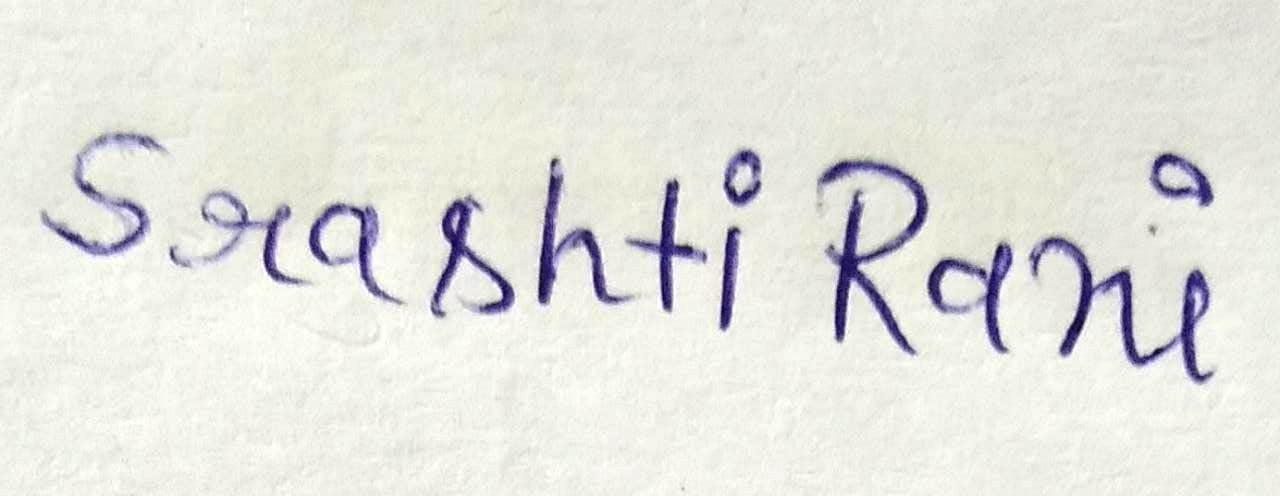 Srashti Rani